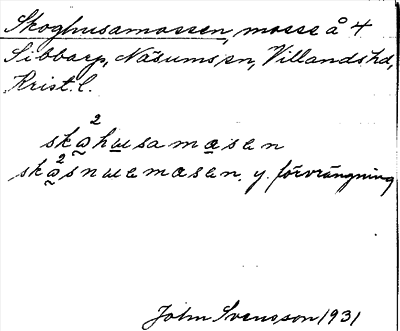 Skoghusamossen, mosse å 4
Sibbarp, Näsums sn, Villands hd,
Krist. l.
2
skohusamosen
2
skosnuemosen. y. förvrängning
John Svensson 1931